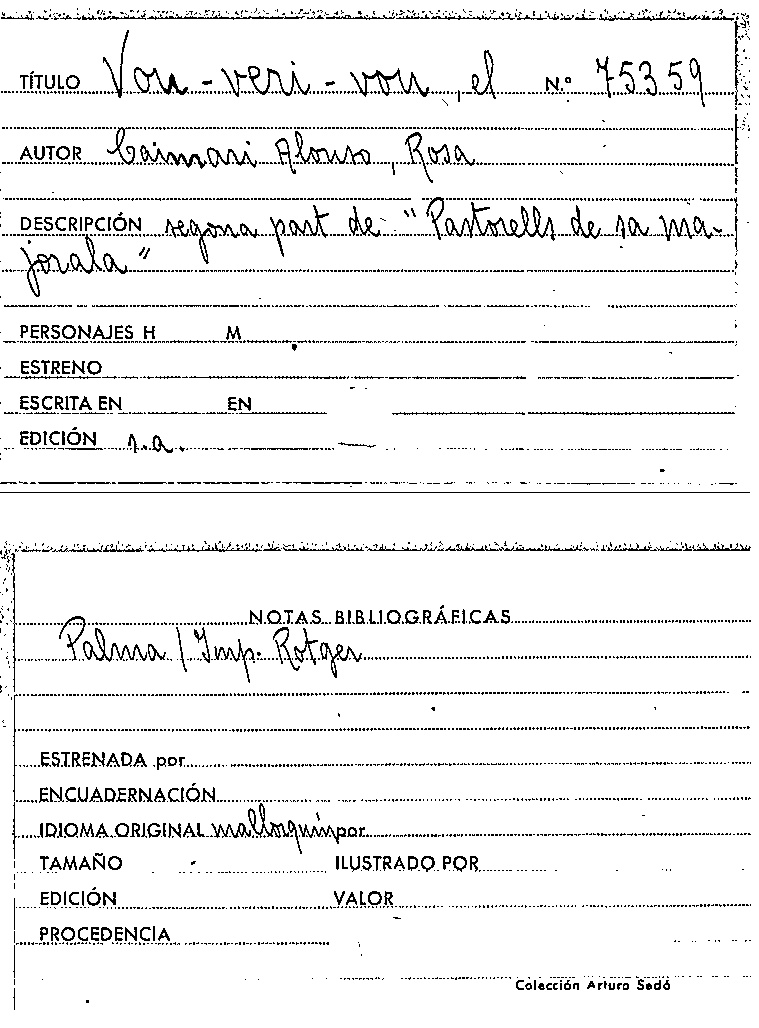 TÍTULO Vou-veri-vou, el N.º 75359
AUTOR Caimari Alonso, Rosa
DESCRIPCIÓN segona part de "Pastorells de sa ma-
jorala"
PERSONAJES H M
ESTRENO
ESCRITA EN EN
EDICIÓN s.a.
NOTAS BIBLIOGRÁFICAS
Palma / Imp. Rotger
ESTRENADA por
ENCUADERNACIÓN
IDIOMA ORIGINAL mallorquín por
TAMAÑO ILUSTRADO POR
EDICIÓN VALOR
PROCEDENCIA
Colección Arturo Sedó